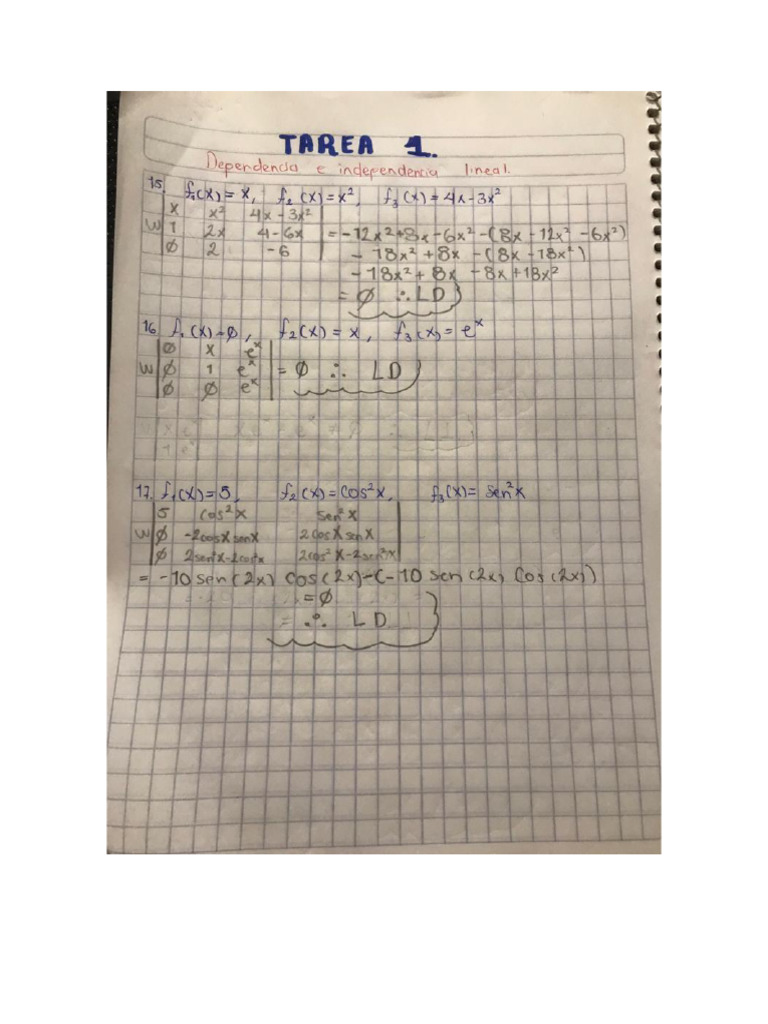 TAREA 1.
Dependencia e independencia lineal.
15. f₁(x)=x, f₂(x)=x², f₃(x)=4x-3x²
x x² 4x-3x²
W 1 2x 4-6x =-12x²+8x-6x²-(8x-12x²-6x²)
0 2 -6 -18x²+8x-(8x-18x²)
-18x²+8x-8x+18x²
=∅ ∴ LD
16. f₁(x)=∅, f₂(x)=x, f₃(x)=eˣ
∅ x eˣ
W ∅ 1 eˣ =∅ ∴ LD
∅ ∅ eˣ
17. f₁(x)=5, f₂(x)=cos²x, f₃(x)=sen²x
5 cos²x sen²x
W ∅ -2cosxsenx 2cosxsenx
∅ 2sen²x-2cos²x 2cos²x-2sen²x
=-10sen(2x)cos(2x)-(-10sen(2x)cos(2x))
=∅
= ∴ LD